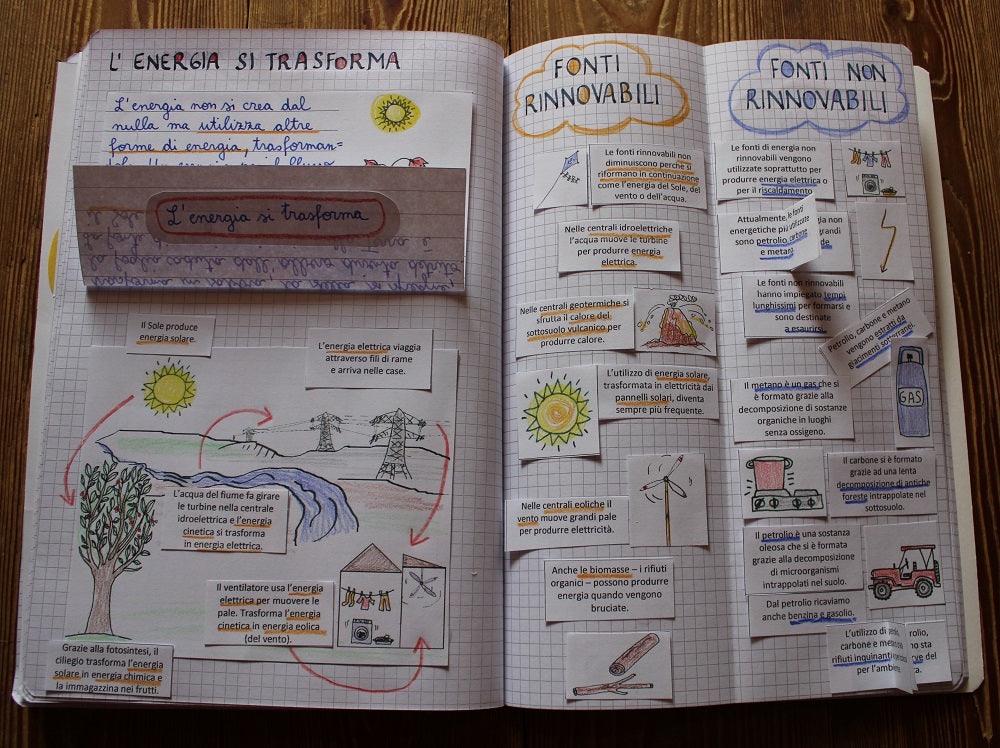 L' ENERGIA SI TRASFORMA
L'energia non si crea dal
nulla ma utilizza altre
forme di energia, trasforman=
L'energia si trasforma
Il Sole produce
energia solare.
L'energia elettrica viaggia
attraverso fili di rame
e arriva nelle case.
L'acqua del fiume fa girare
le turbine nella centrale
idroelettrica e l'energia
cinetica si trasforma
in energia elettrica.
Il ventilatore usa l'energia
elettrica per muovere le
pale. Trasforma l'energia
cinetica in energia eolica
(del vento).
Grazie alla fotosintesi, il
ciliegio trasforma l'energia
solare in energia chimica e
la immagazzina nei frutti.
FONTI
RINNOVABILI
Le fonti rinnovabili non
diminuiscono perché si
riformano in continuazione
come l'energia del Sole, del
vento o dell'acqua.
Nelle centrali idroelettriche
l'acqua muove le turbine
per produrre energia
elettrica.
Nelle centrali geotermiche si
sfrutta il calore del
sottosuolo vulcanico per
produrre calore.
L'utilizzo di energia solare,
trasformata in elettricità dai
pannelli solari, diventa
sempre più frequente.
Nelle centrali eoliche il
vento muove grandi pale
per produrre elettricità.
Anche le biomasse – i rifiuti
organici – possono produrre
energia quando vengono
bruciate.
FONTI NON
RINNOVABILI
Le fonti di energia non
rinnovabili vengono
utilizzate soprattutto per
produrre energia elettrica o
per il riscaldamento
Attualmente, le fonti
energetiche più utilizzate
sono petrolio, carbone
e metano.
Le fonti non rinnovabili
hanno impiegato tempi
lunghissimi per formarsi e
sono destinate
a esaurirsi.
Petrolio, carbone e metano
vengono estratti da
giacimenti sotterranei.
GAS
Il metano è un gas che si
è formato grazie alla
decomposizione di sostanze
organiche in luoghi
senza ossigeno.
Il carbone si è formato
grazie ad una lenta
decomposizione di antiche
foreste intrappolate nel
sottosuolo.
Il petrolio è una sostanza
oleosa che si è formata
grazie alla decomposizione
di microorganismi
intrappolati nel suolo.
Dal petrolio ricaviamo
anche benzina e gasolio.
L'utilizzo di
carbone e
rifiuti inquinanti
per l'ambie